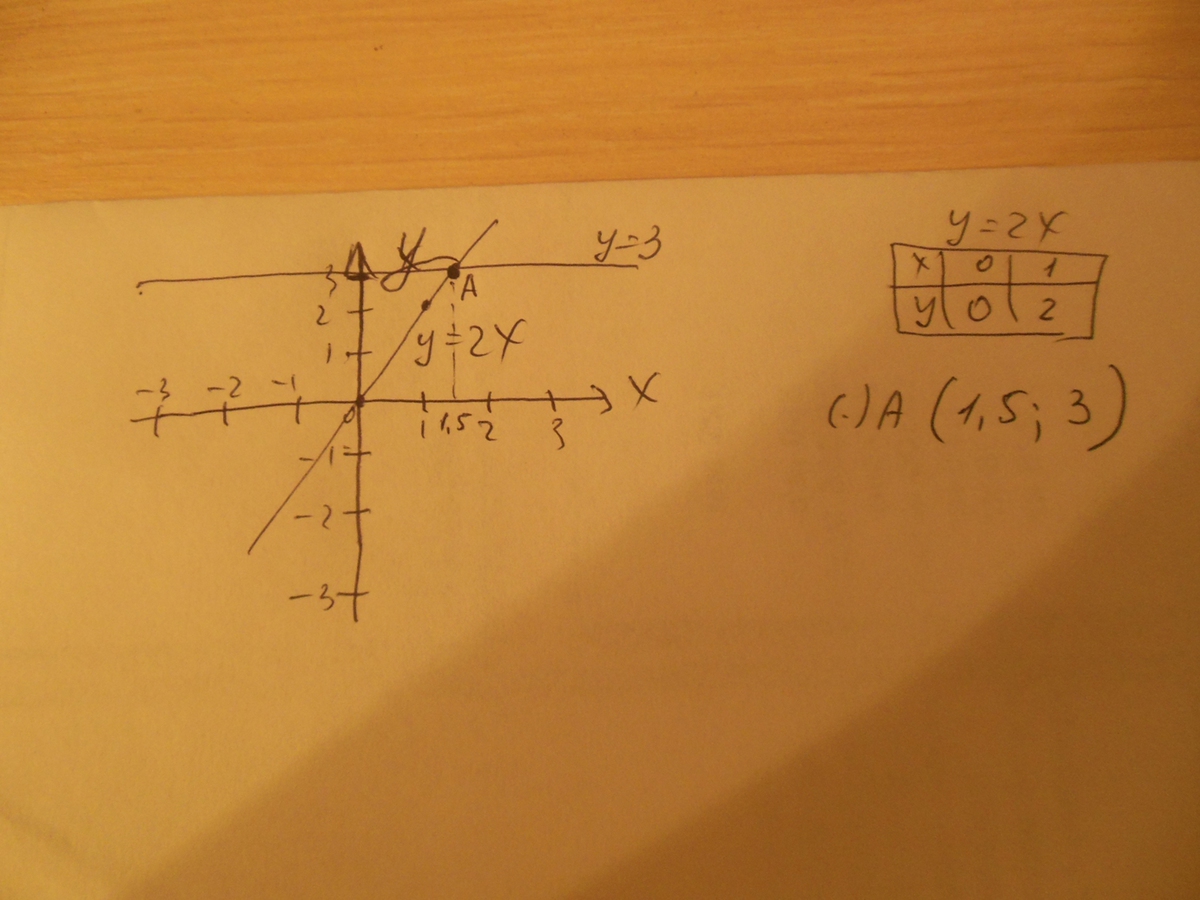 y
y=3
3
A
2
y=2x
1
-3 -2 -1
x
0
1 1,5 2 3
-1
-2
-3
y=2x
x 0 1
y 0 2
(·)A (1,5; 3)